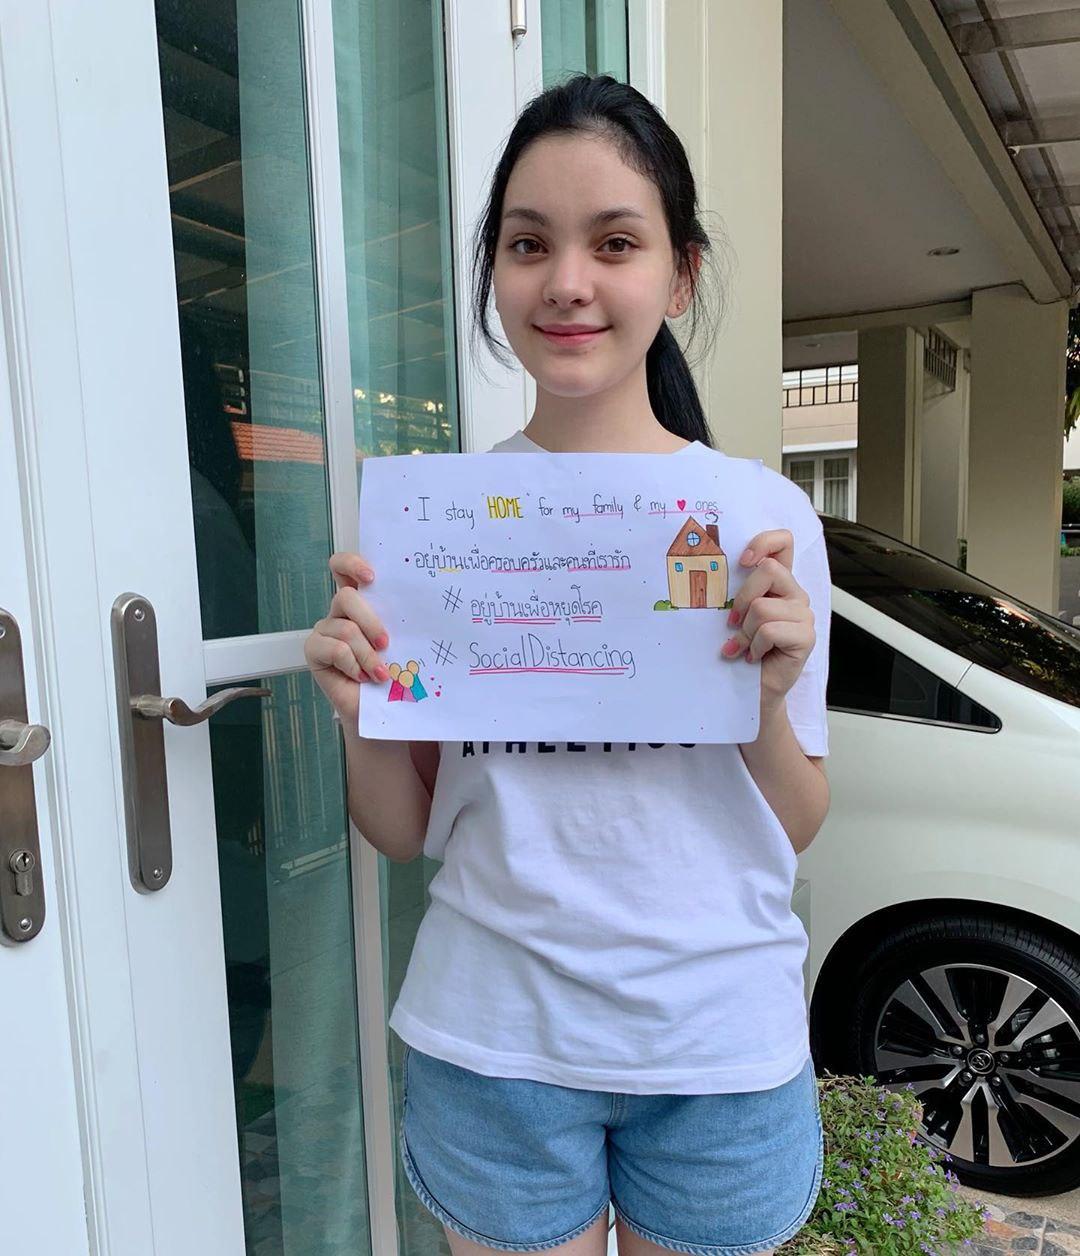 • I stay "HOME" for my family & my ♥ ones
• อยู่บ้านเพื่อครอบครัวและคนที่เรารัก
# อยู่บ้านเพื่อหยุดโรค
# SocialDistancing